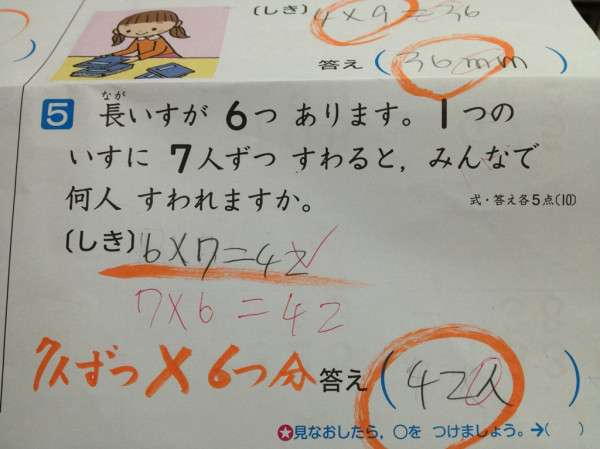 (しき) 4×9=36
答え (36mm)
5 長いすが 6つ あります。1つの
いすに 7人ずつ すわると，みんなで
何人 すわれますか。
式・答え各5点(10)
(しき) 6×7=42
7×6=42
7人ずつ×6つ分
答え (42人)
★見なおしたら，○を つけましょう。→( )